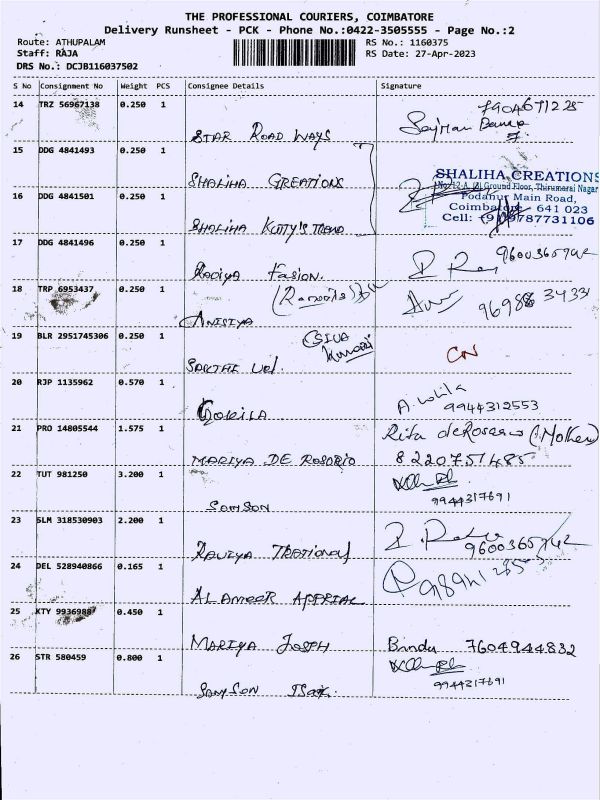 THE PROFESSIONAL COURIERS, COIMBATORE
Delivery Runsheet - PCK - Phone No.:0422-3505555 - Page No.:2
Route: ATHUPALAM RS No.: 1160375
Staff: RAJA RS Date: 27-Apr-2023
DRS No.: DCJB116037502
S No Consignment No Weight PCS Consignee Details Signature
14 TRZ 56967138 0.250 1 7904671225
STAR ROAD WAYS
15 DDG 4841493 0.250 1
SHALIHA CREATIONS
No. 12-A, Ground Floor, Thirumarai Nagar
SHALIHA GREATIONS
16 DDG 4841501 0.250 1
Podanur Main Road,
Coimbatore 641 023
Cell: 9787731106
SHALIHA KUTTY'S TREND
17 DDG 4841496 0.250 1
9600365742
RADIYA FASION.
18 TRP 6953437 0.250 1
96988 3433
ANISIYA
19 BLR 2951745306 0.250 1
(SIVA
Kumar)
CN
SAKTHI
20 RJP 1135962 0.570 1
9944312553
GOKILA
21 PRO 14805544 1.575 1
Rita (Mother)
MARIYA DE ROSORIO 8220751485
22 TUT 981250 3.200 1
9944317691
SAMSON
23 SLM 318530903 2.200 1
9600365742
24 DEL 528940866 0.165 1
AL AMEER
25 KTY 9936988 0.450 1
MARIYA JOSEPH Bindu 7604944832
26 STR 580459 0.800 1
9944317691
SAMSON